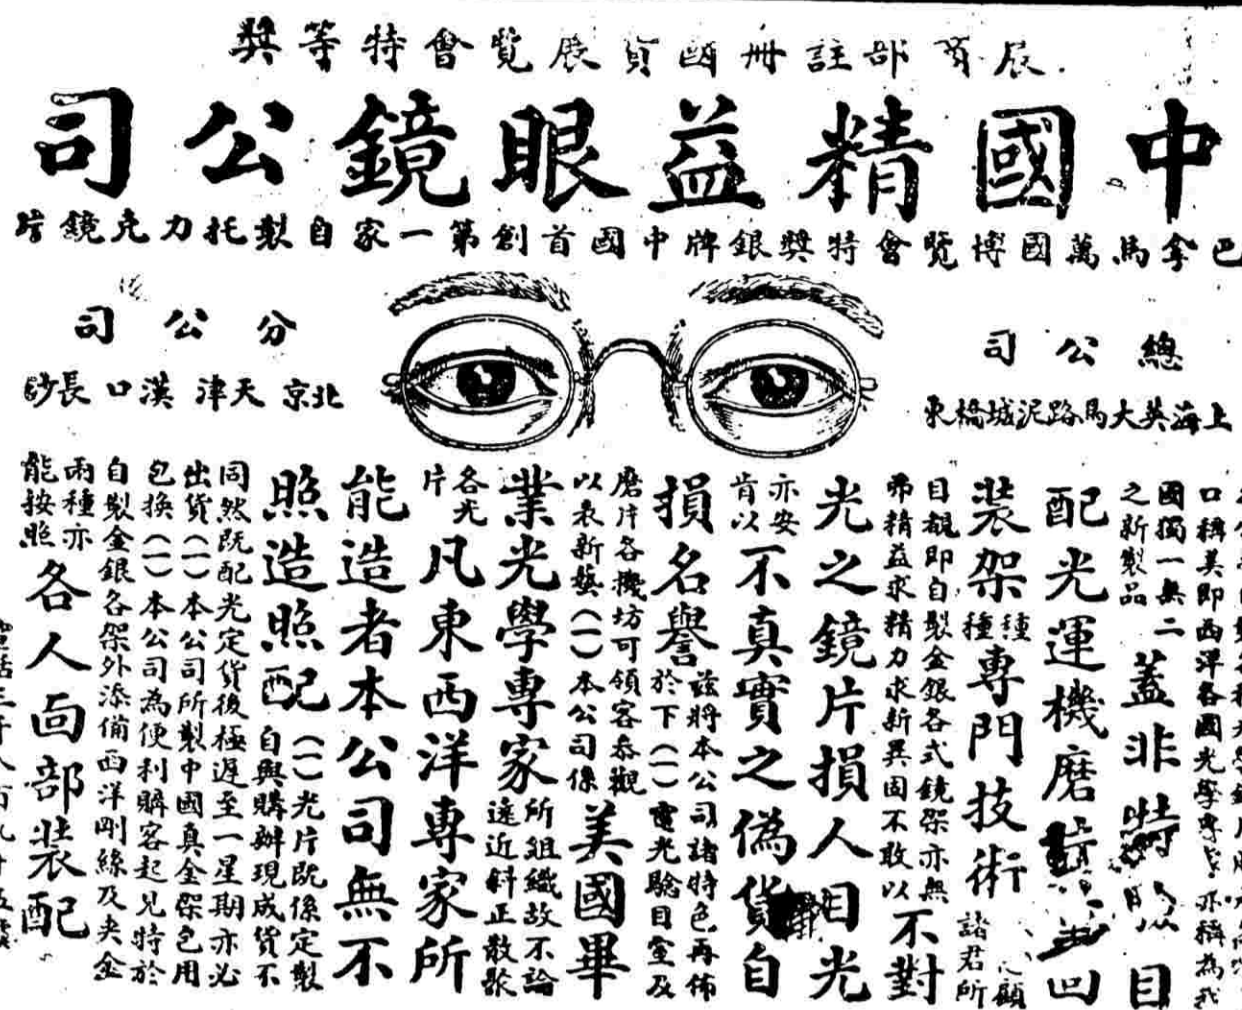 農商部註冊國貨展覽會特等獎
中國精益眼鏡公司
巴拿馬萬國博覽會特獎銀牌中國首創第一家自製托力克鏡片
總公司
上海英大馬路泥城橋東
分公司
北京天津漢口長沙
口稱美即西洋各國光學專家亦稱為我
國獨一無二
之新製品
蓋非特
目
配光運機磨
凹
裝架
種種
專門技術
諸君所
顧
目覩即自製金銀各式鏡架亦無
弗精益求精力求新異固不敢以
不對
光之鏡片損人目光
亦安
肯以
不真實之偽貨自
損名譽
茲將本公司諸特色再佈
於下(一)電光驗目室及
磨片各機坊可領客參觀
以表新藝(一)本公司係
美國畢
業光學專家
所組織故不論
遠近斜正散聚
各光
片
凡東西洋專家所
能造者本公司無不
照造照配
(一)光片既係定製
自與購辦現成貨不
同然既配光定貨後極遲至一星期亦必
出貨(一)本公司所製中國真金架包用
包換(一)本公司為便利購客起見特於
自製金銀各架外添備西洋剛絲及夾金
兩種亦
能按照
各人面部裝配